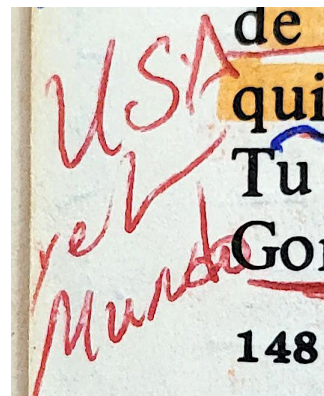 USA
y el
Mundo
de
qui
Tu
Gor
148